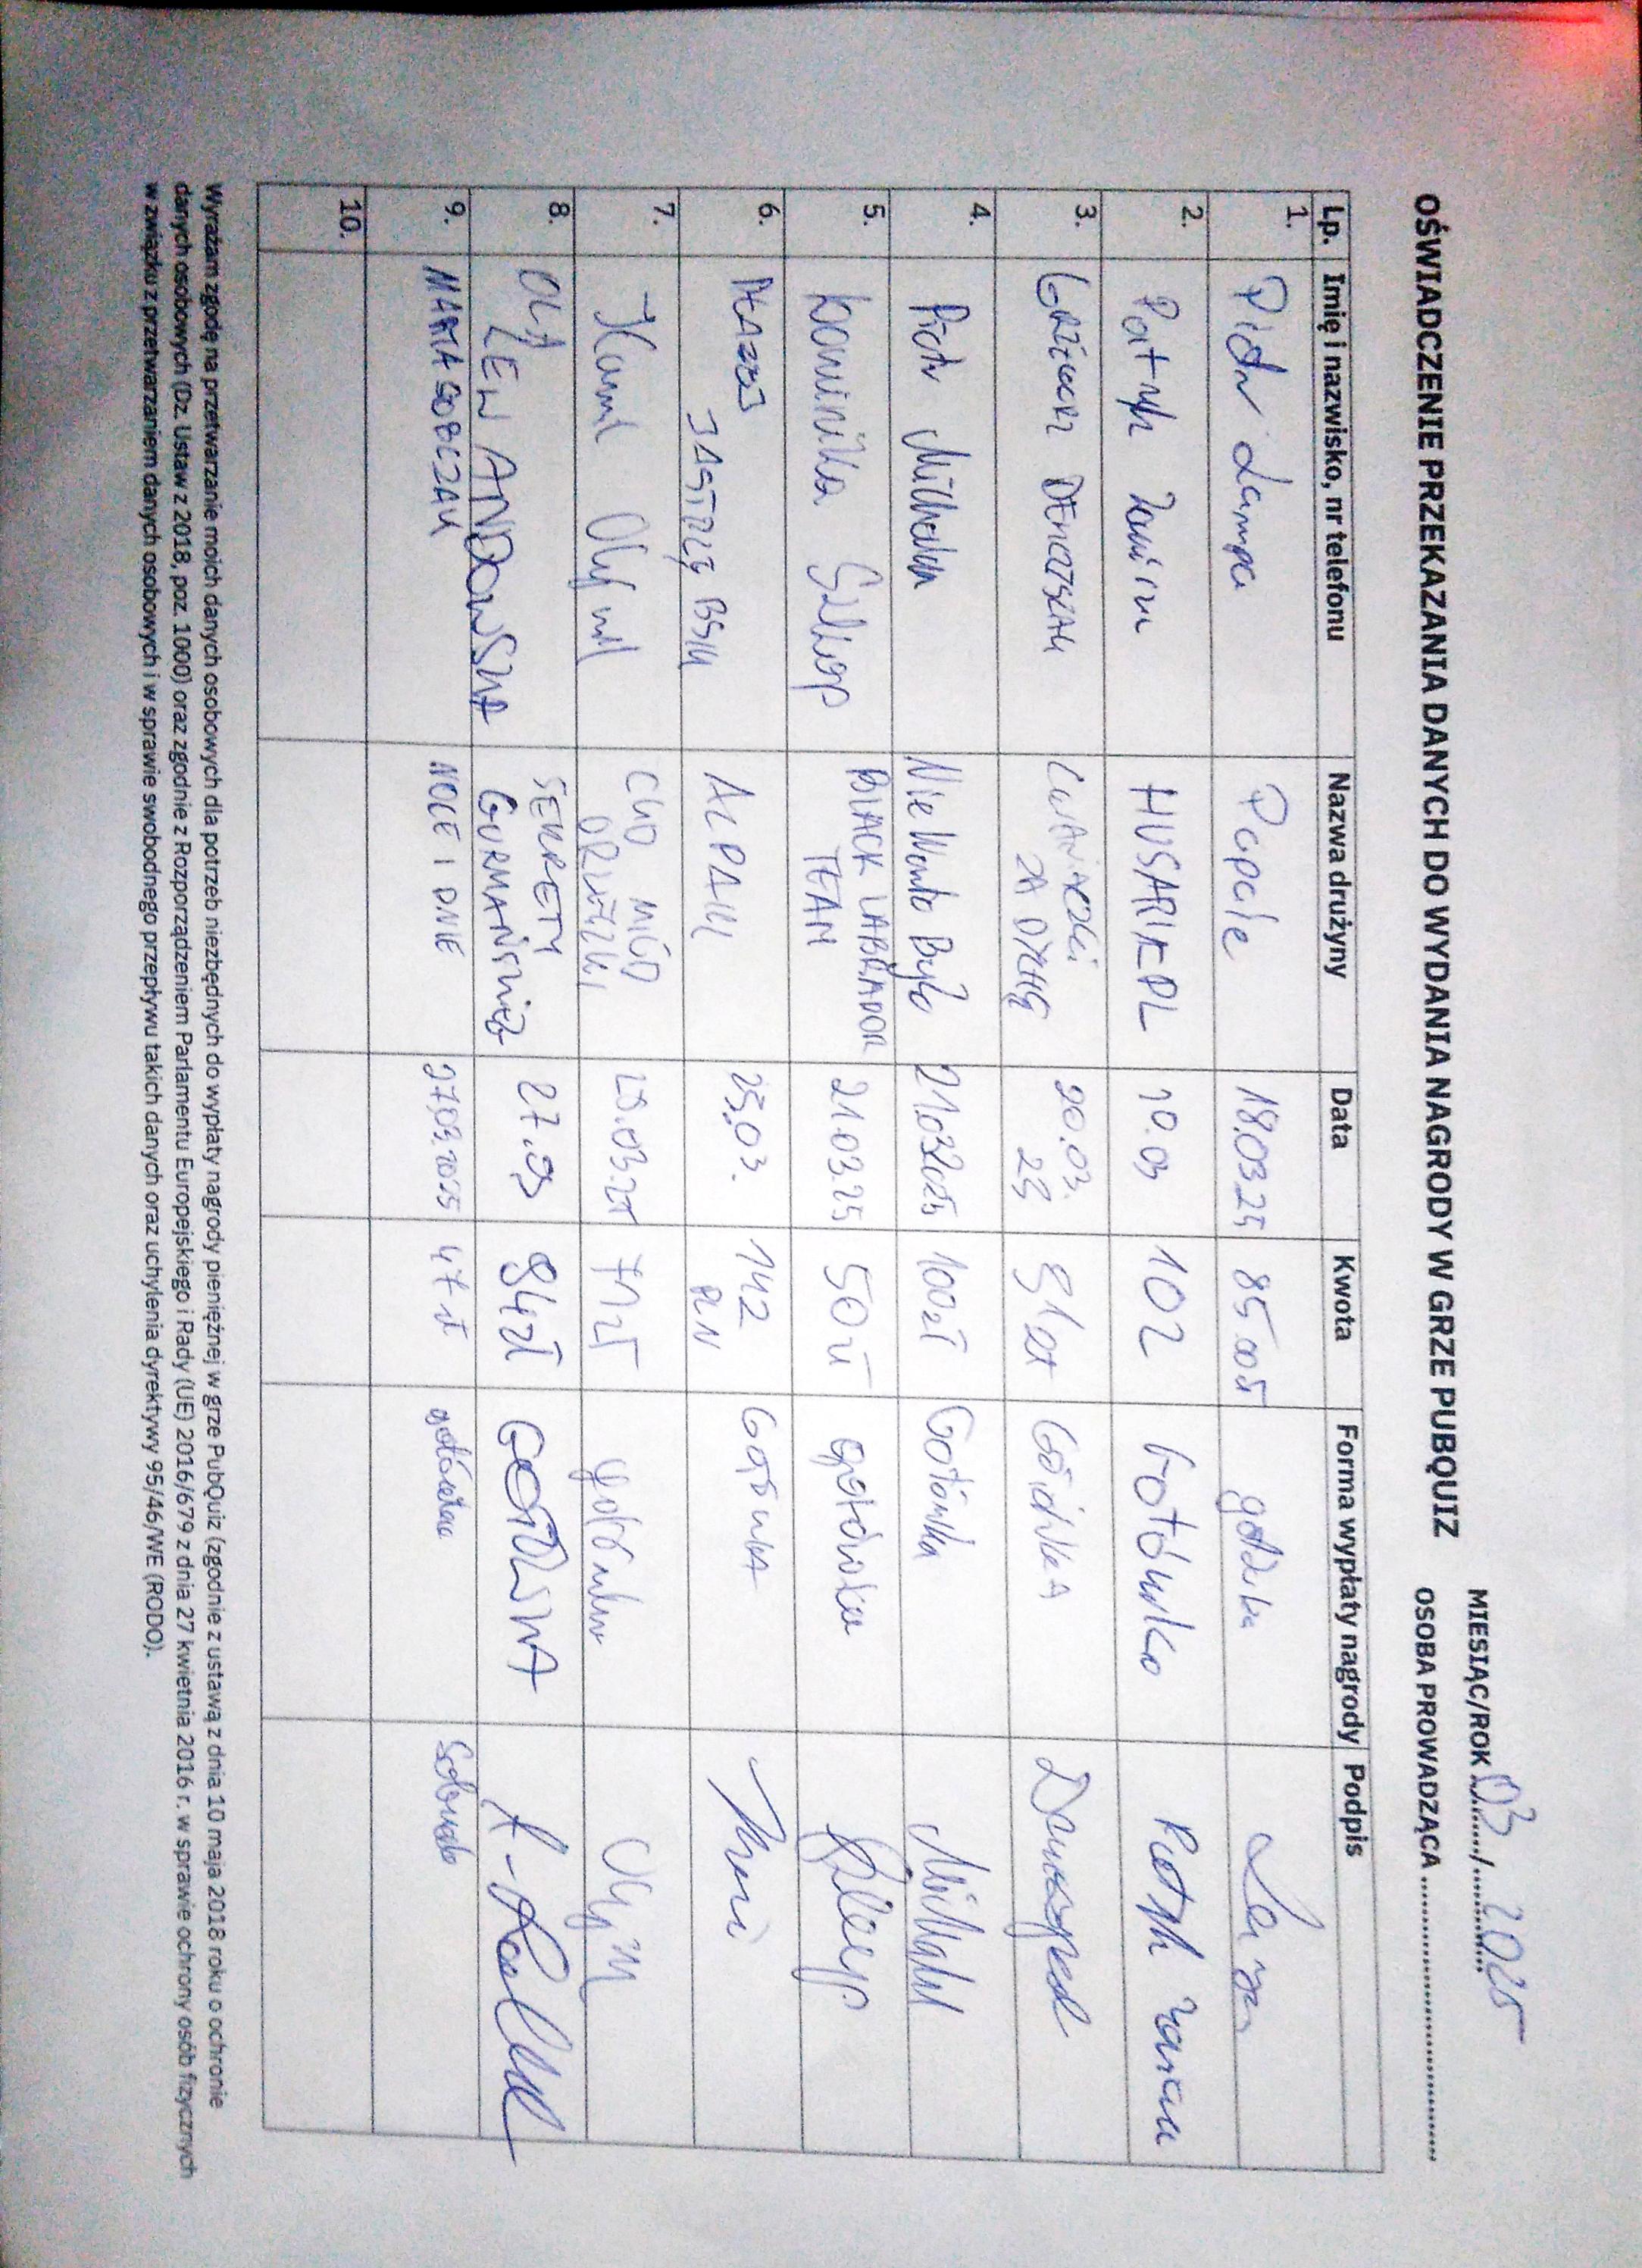 OŚWIADCZENIE PRZEKAZANIA DANYCH DO WYDANIA NAGRODY W GRZE PUBQUIZ
MIESIĄC/ROK 03 / 2025
OSOBA PROWADZĄCA
Lp. Imię i nazwisko, nr telefonu Nazwa drużyny Data Kwota Forma wypłaty nagrody Podpis
1. Piotr Lampa Papale 18.03.25 85
2. Patryk HUSARIA PL 20.03 102 Gotówka Patryk
3. GRZEGORZ 20.03. 91 zł
ZA DYCHĘ 25
4. Piotr Michalak Nie Warto Było 21.03.2025 100zł Gotówka Michalak
5. Dominika BLACK LABRADOR 21.03.25 50 zł gotówka
TEAM
6. BŁAŻEJ ALPAKI 25.03. 142 GOTÓWKA
JASTRZĘBSKI PLN
7. Kamil CUD MIÓD 71zł gotówka
ORZESZKI
8. OLA SEKRETY 27.03 94zł GOTÓWKA
LEWANDOWSKA
9. MARTA SOBCZAK NOCE I DNIE 27.03.2025 47 zł gotówka Sobczak
10.
Wyrażam zgodę na przetwarzanie moich danych osobowych dla potrzeb niezbędnych do wypłaty nagrody pieniężnej w grze PubQuiz (zgodnie z ustawą z dnia 10 maja 2018 roku o ochronie
danych osobowych (Dz. Ustaw z 2018, poz. 1000) oraz zgodnie z Rozporządzeniem Parlamentu Europejskiego i Rady (UE) 2016/679 z dnia 27 kwietnia 2016 r. w sprawie ochrony osób fizycznych
w związku z przetwarzaniem danych osobowych i w sprawie swobodnego przepływu takich danych oraz uchylenia dyrektywy 95/46/WE (RODO).